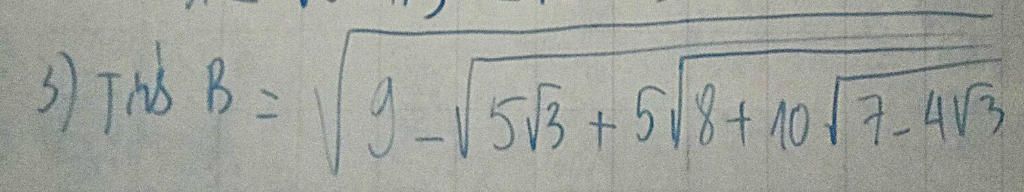 3) Tính B = √(9 - √(5√3 + 5√(8 + 10√(7 - 4√3))))